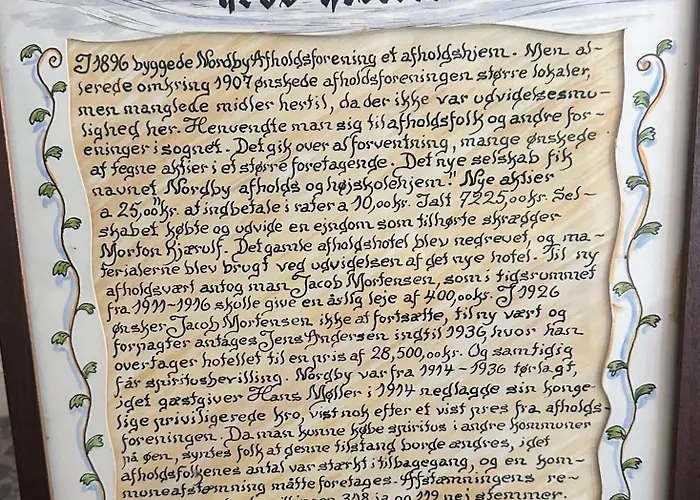 I 1896 byggede Nordby Afholdsforening et afholdshjem. Men al-
lerede omkring 1907 ønskede afholdsforeningen større lokaler,
men manglede midler hertil, da der ikke var udvidelsesmu-
lighed her. Henvendte man sig til afholdsfolk og andre for-
eninger i sognet. Det gik over al forventning, mange ønskede
at tegne aktier i et større foretagende. Det nye selskab fik
navnet "Nordby afholds og højskolehjem." Nye aktier
a 25,00 kr. at indbetale i rater a 10,00 kr. Ialt 7225,00 kr. Sel-
skabet købte og udvide en ejndom som tilhørte skrædder
Morton Kjærulf. Det gamle afholdshotel blev nedrevet, og ma-
terialerne blev brugt ved udvidelsen af det nye hotel. Til ny
afholdsvært antog man Jacob Mortensen, som i tidsrummet
fra 1911-1916 skulle give en årlig leje af 400,00 kr. I 1926
ønsker Jacob Mortensen ikke at fortsætte, til ny vært og
forpagter antages Jens Andersen indtil 1936, hvor han
overtager hotellet til en pris af 28,500,00 kr. Og samtidig
får spiritusbevilling. Nordby var fra 1914-1936 tørlagt,
idet gæstgiver Hans Møller i 1914 nedlagde sin konge-
lige priviligerede kro, vist nok efter et vist pres fra afholds-
foreningen. Da man kunne købe spiritus i andre kommuner
på øen, syntes folk at denne tilstand burde ændres, idet
afholdsfolkenes antal var stærkt i tilbagegang, og en kom-
muneafstemning måtte foretages. Afstemningens re-
318 ja og 119 nej stemmer.